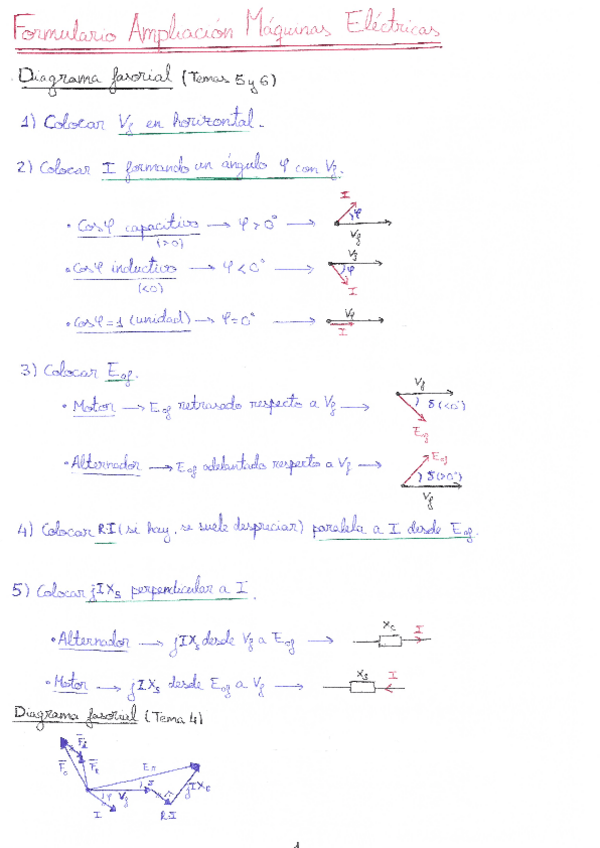 Formulario Ampliación Máquinas Eléctricas
Diagrama fasorial (Temas 5 y 6)
1) Colocar Vf en horizontal.
2) Colocar I formando un ángulo φ con Vf.
• Cosφ capacitivo → φ > 0° →
(>0)
I
φ
Vf
• Cosφ inductivo → φ < 0° →
(<0)
Vf
φ
I
• Cosφ = 1 (unidad) → φ = 0° →
Vf
I
3) Colocar Eof.
• Motor → Eof retrasado respecto a Vf →
Vf
δ(<0°)
Ef
• Alternador → Eof adelantado respecto a Vf →
Eof
δ(>0°)
Vf
4) Colocar RI (si hay, se suele despreciar) paralela a I desde Eof.
5) Colocar jIXs perpendicular a I.
• Alternador → jIXs desde Vf a Eof →
I
• Motor → jIXs desde Eof a Vf →
Xs
I
Diagrama fasorial (Tema 4)
Vf
I
RI
1